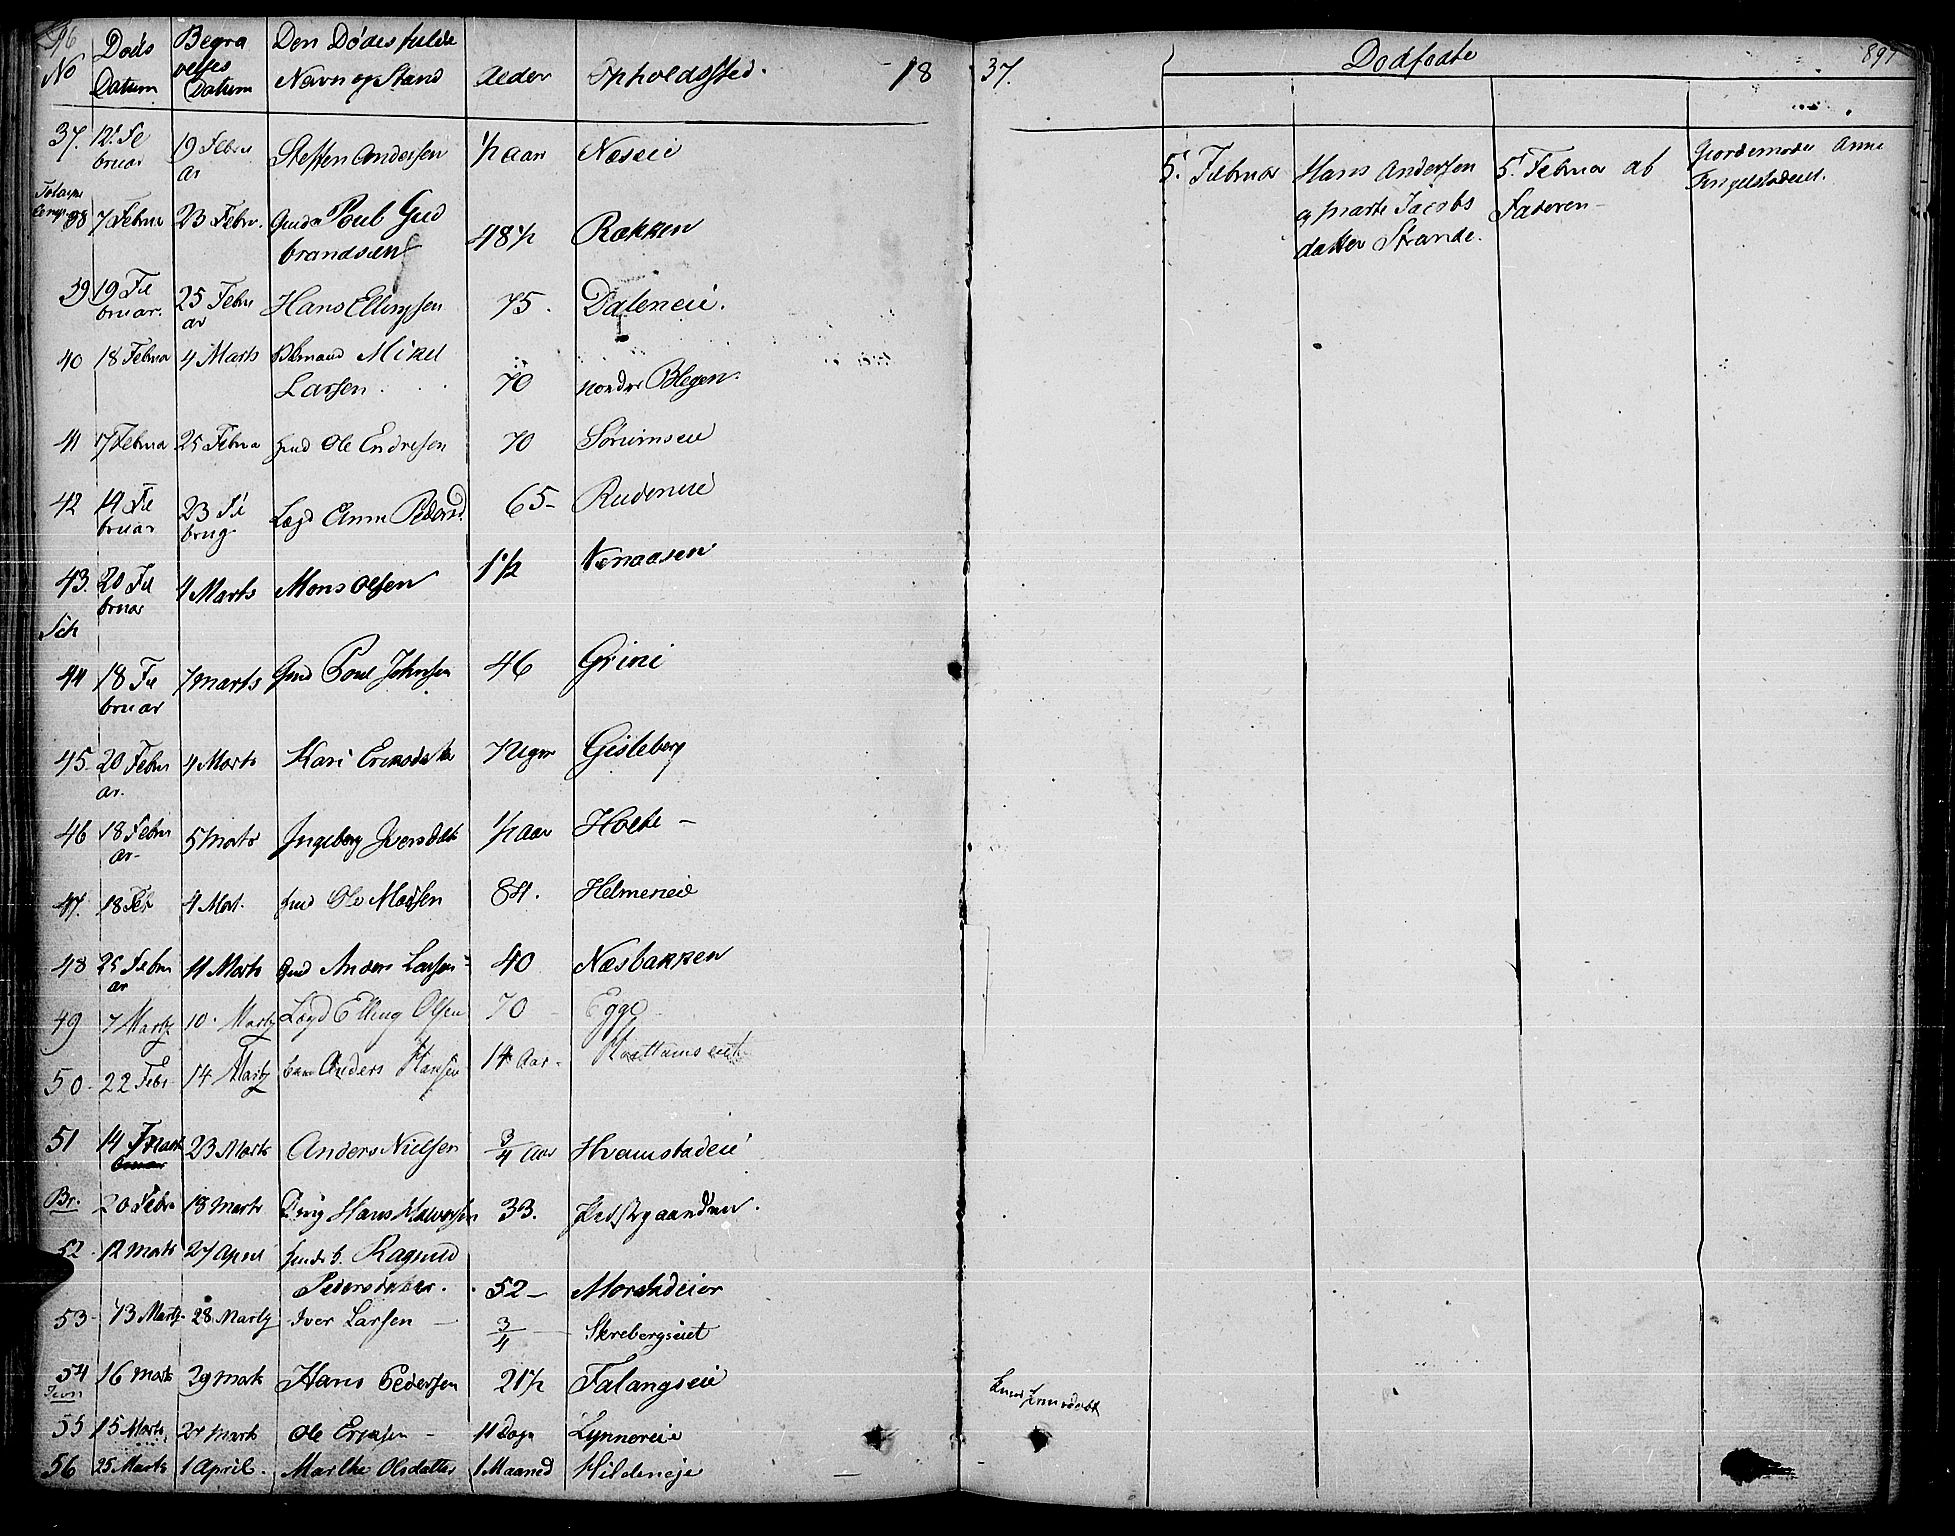 No Døds Datum Begravelses Datum Den Dødes fulde Navn og Stand Alder Opholdssted. 18
37. 12. Februar 19 Februar Steffen Andersen 1/2 Aar Næseie
38 7 Februa 23 Febru. Gmd Poul Gudbrandsen 48 1/2 Røkken
39 19 Februar. 25 Februar Hans Ellingsen 75. Daleneie.
40 18 Februa 4 Marts Mikel Larsen. 70 nordre Blegen.
41 17 Februa 25 Februa Ole Endresen 70 Sørumseie
42 14 Februar 23 Lægd Anne Pedersd 65- Rudeneie
43. 20 Februar 4 Marts Mons Olsen 1 1/2
44 18 Februar 7 Marts Gmd Poul Johnsen 46 Grini
45. 20 Februar. 4 Marts Kari Ericsdatter 7 Uger Gisleberg
46 18 Februar- 5 Marts Ingeborg Iversdatt 1/2 Aar
47. 18 Feb 4 Mart. Ole Madsen 84. Helmeneie
48 25 Februar 11 Marts Gmd Anders Larsen 40 Næsbakken
49 7 Martz 10. Martz Lægd Elling Olsen 70 Egge
50. 22 Febr 14 Martz Anders Hansen 14 Aar-
51 14 Marts 23 Marts Anders Nielsen 3/4 Aar Hvamstadeie
Br. 20 Febru 18 Marts Hans 33.
52. 12 Marts 27 April Ragnild Pedersdatter. 52-
53 13 Martz 28 Martz Iver Larsen - 3/4 - Skrebergseiet
54 16 Marts 29 Mart Hans Pedersen 21 1/2 Falangseie
55 15 Marts 27 Marts Ole Ericsen - 11 Dage Lynneeie
56 25 Marts 1 April. Marthe Olsdatter 1 Maaned Hildeneje
37. Dødfødte 897
5. Februar Hans Andersen og Marte Jacobsdatter Strande. 5. Februar af Faderen- Jordemoder Anne